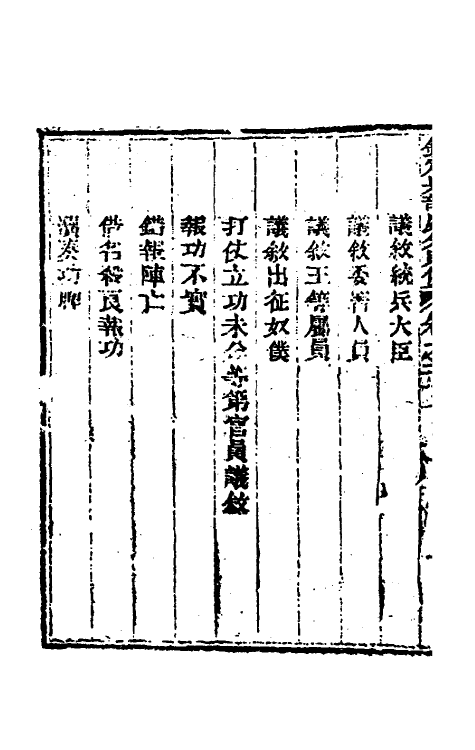 議敘統兵大臣
議敘委署人員
議敘王等屬員
議敘出征奴僕
打仗立功未分等第官員議敘
報功不實
錯報陣亡
借名發良報功
濫奏功牌